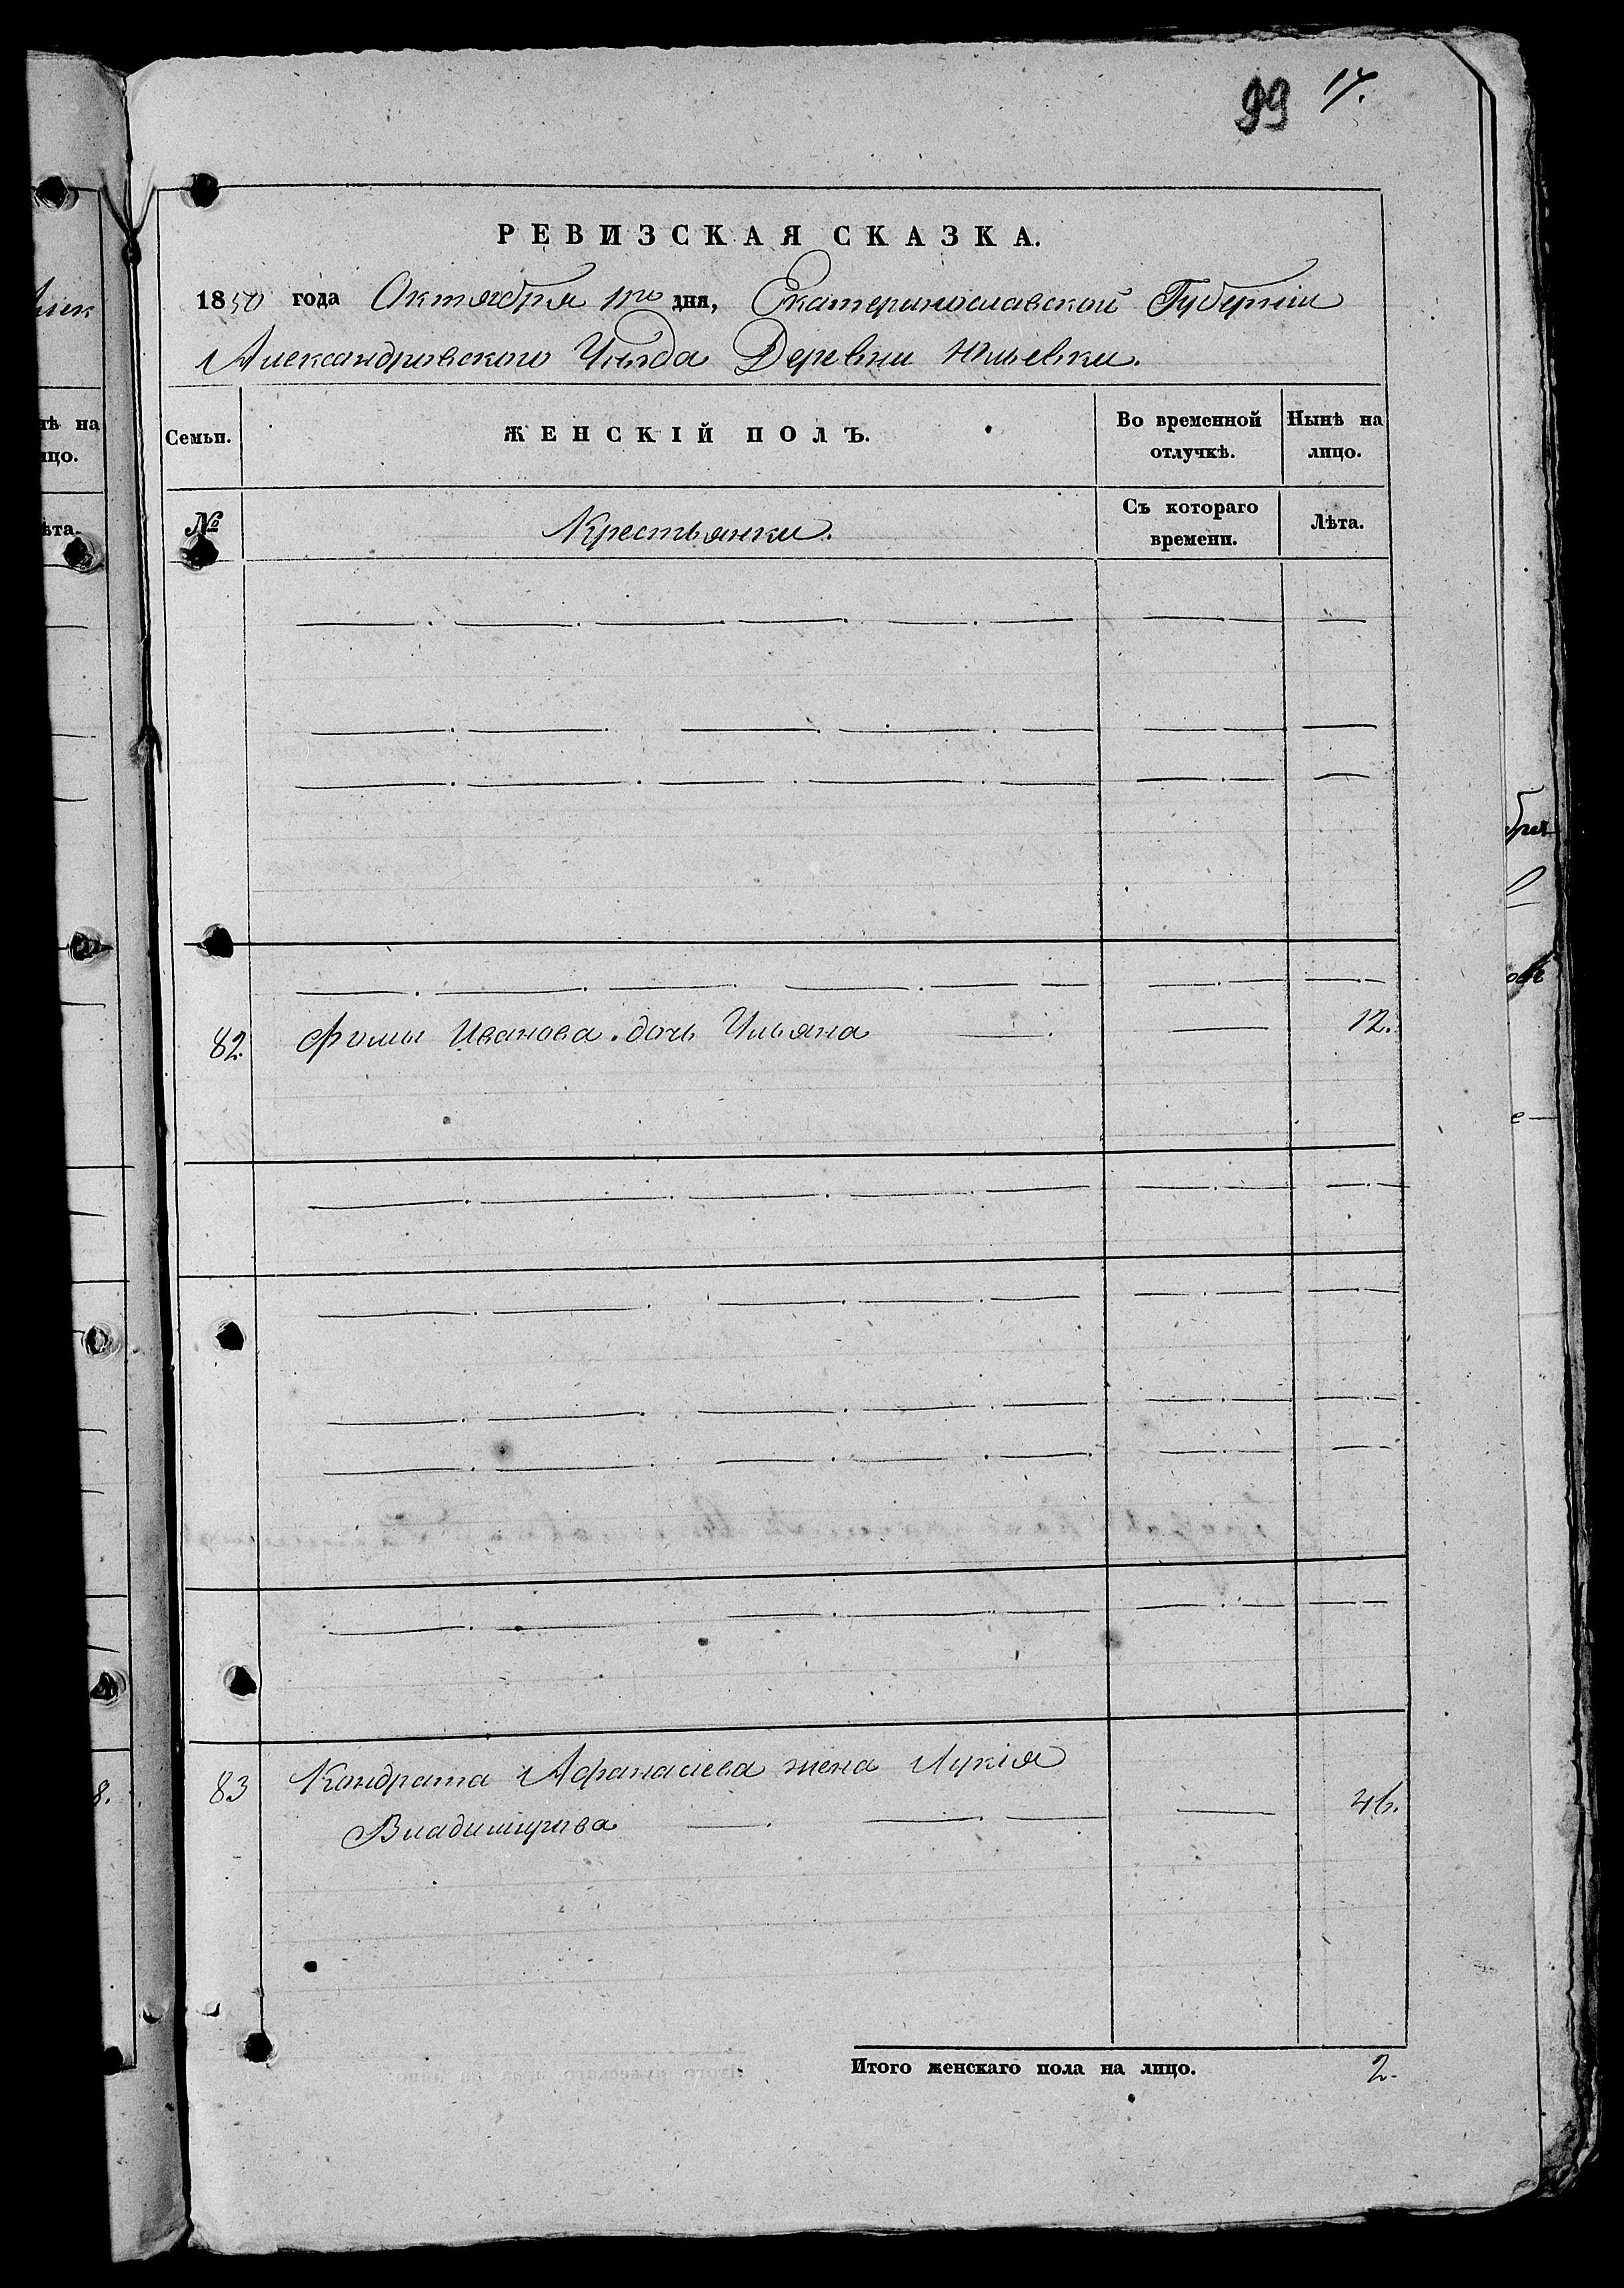 99 17.
РЕВИЗСКАЯ СКАЗКА.
1850 года Октября 1го дня, Екатеринославской Губерніи
Александровского Уѣзда Деревни Юльевки.
Семьи. ЖЕНСКІЙ ПОЛЪ. Во временной отлучкѣ. Нынѣ на лицо.
№ Крестьянки. Съ котораго времени. Лѣта.
82. Фомы Иванова дочь Ульяна 12.
83 Кондрата Афанасіева жена Лукія
Владимирова 46.
Итого женскаго пола на лицо. 2.